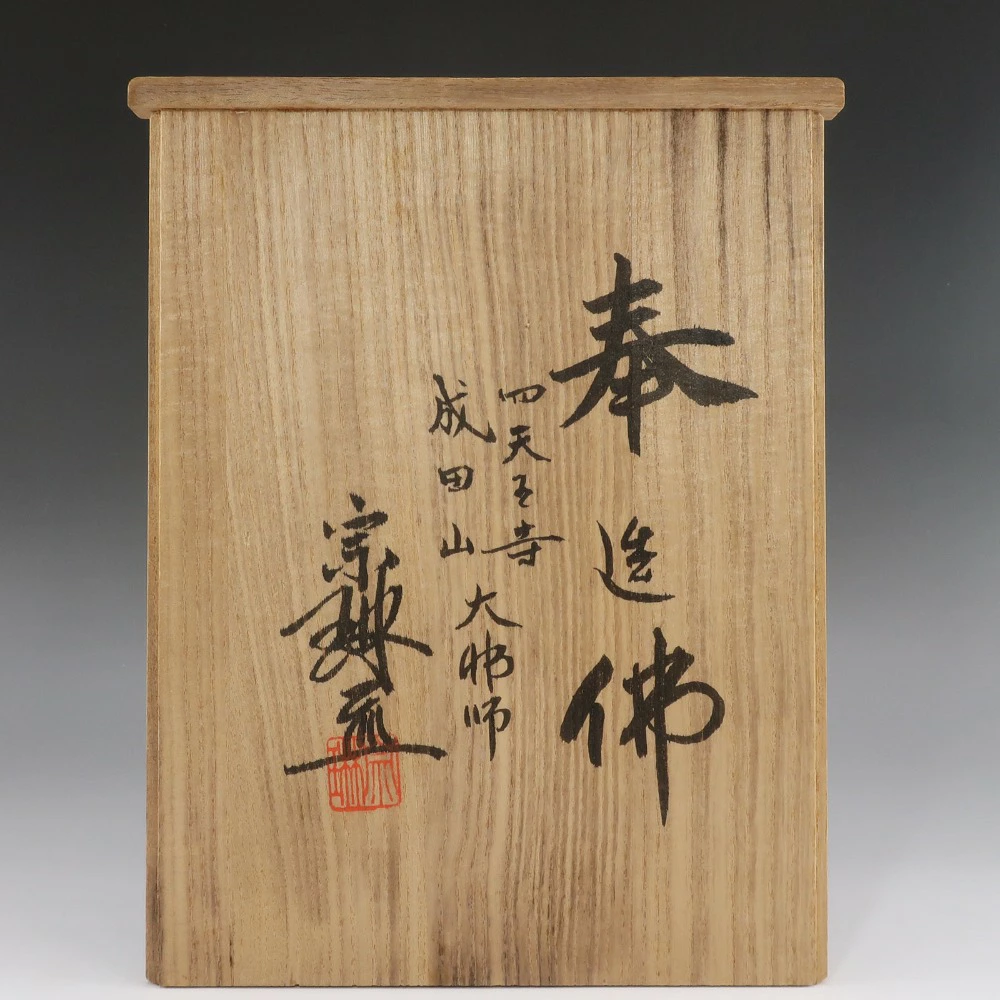 奉造佛
四天王寺
成田山
大佛師
宗琳
宗琳